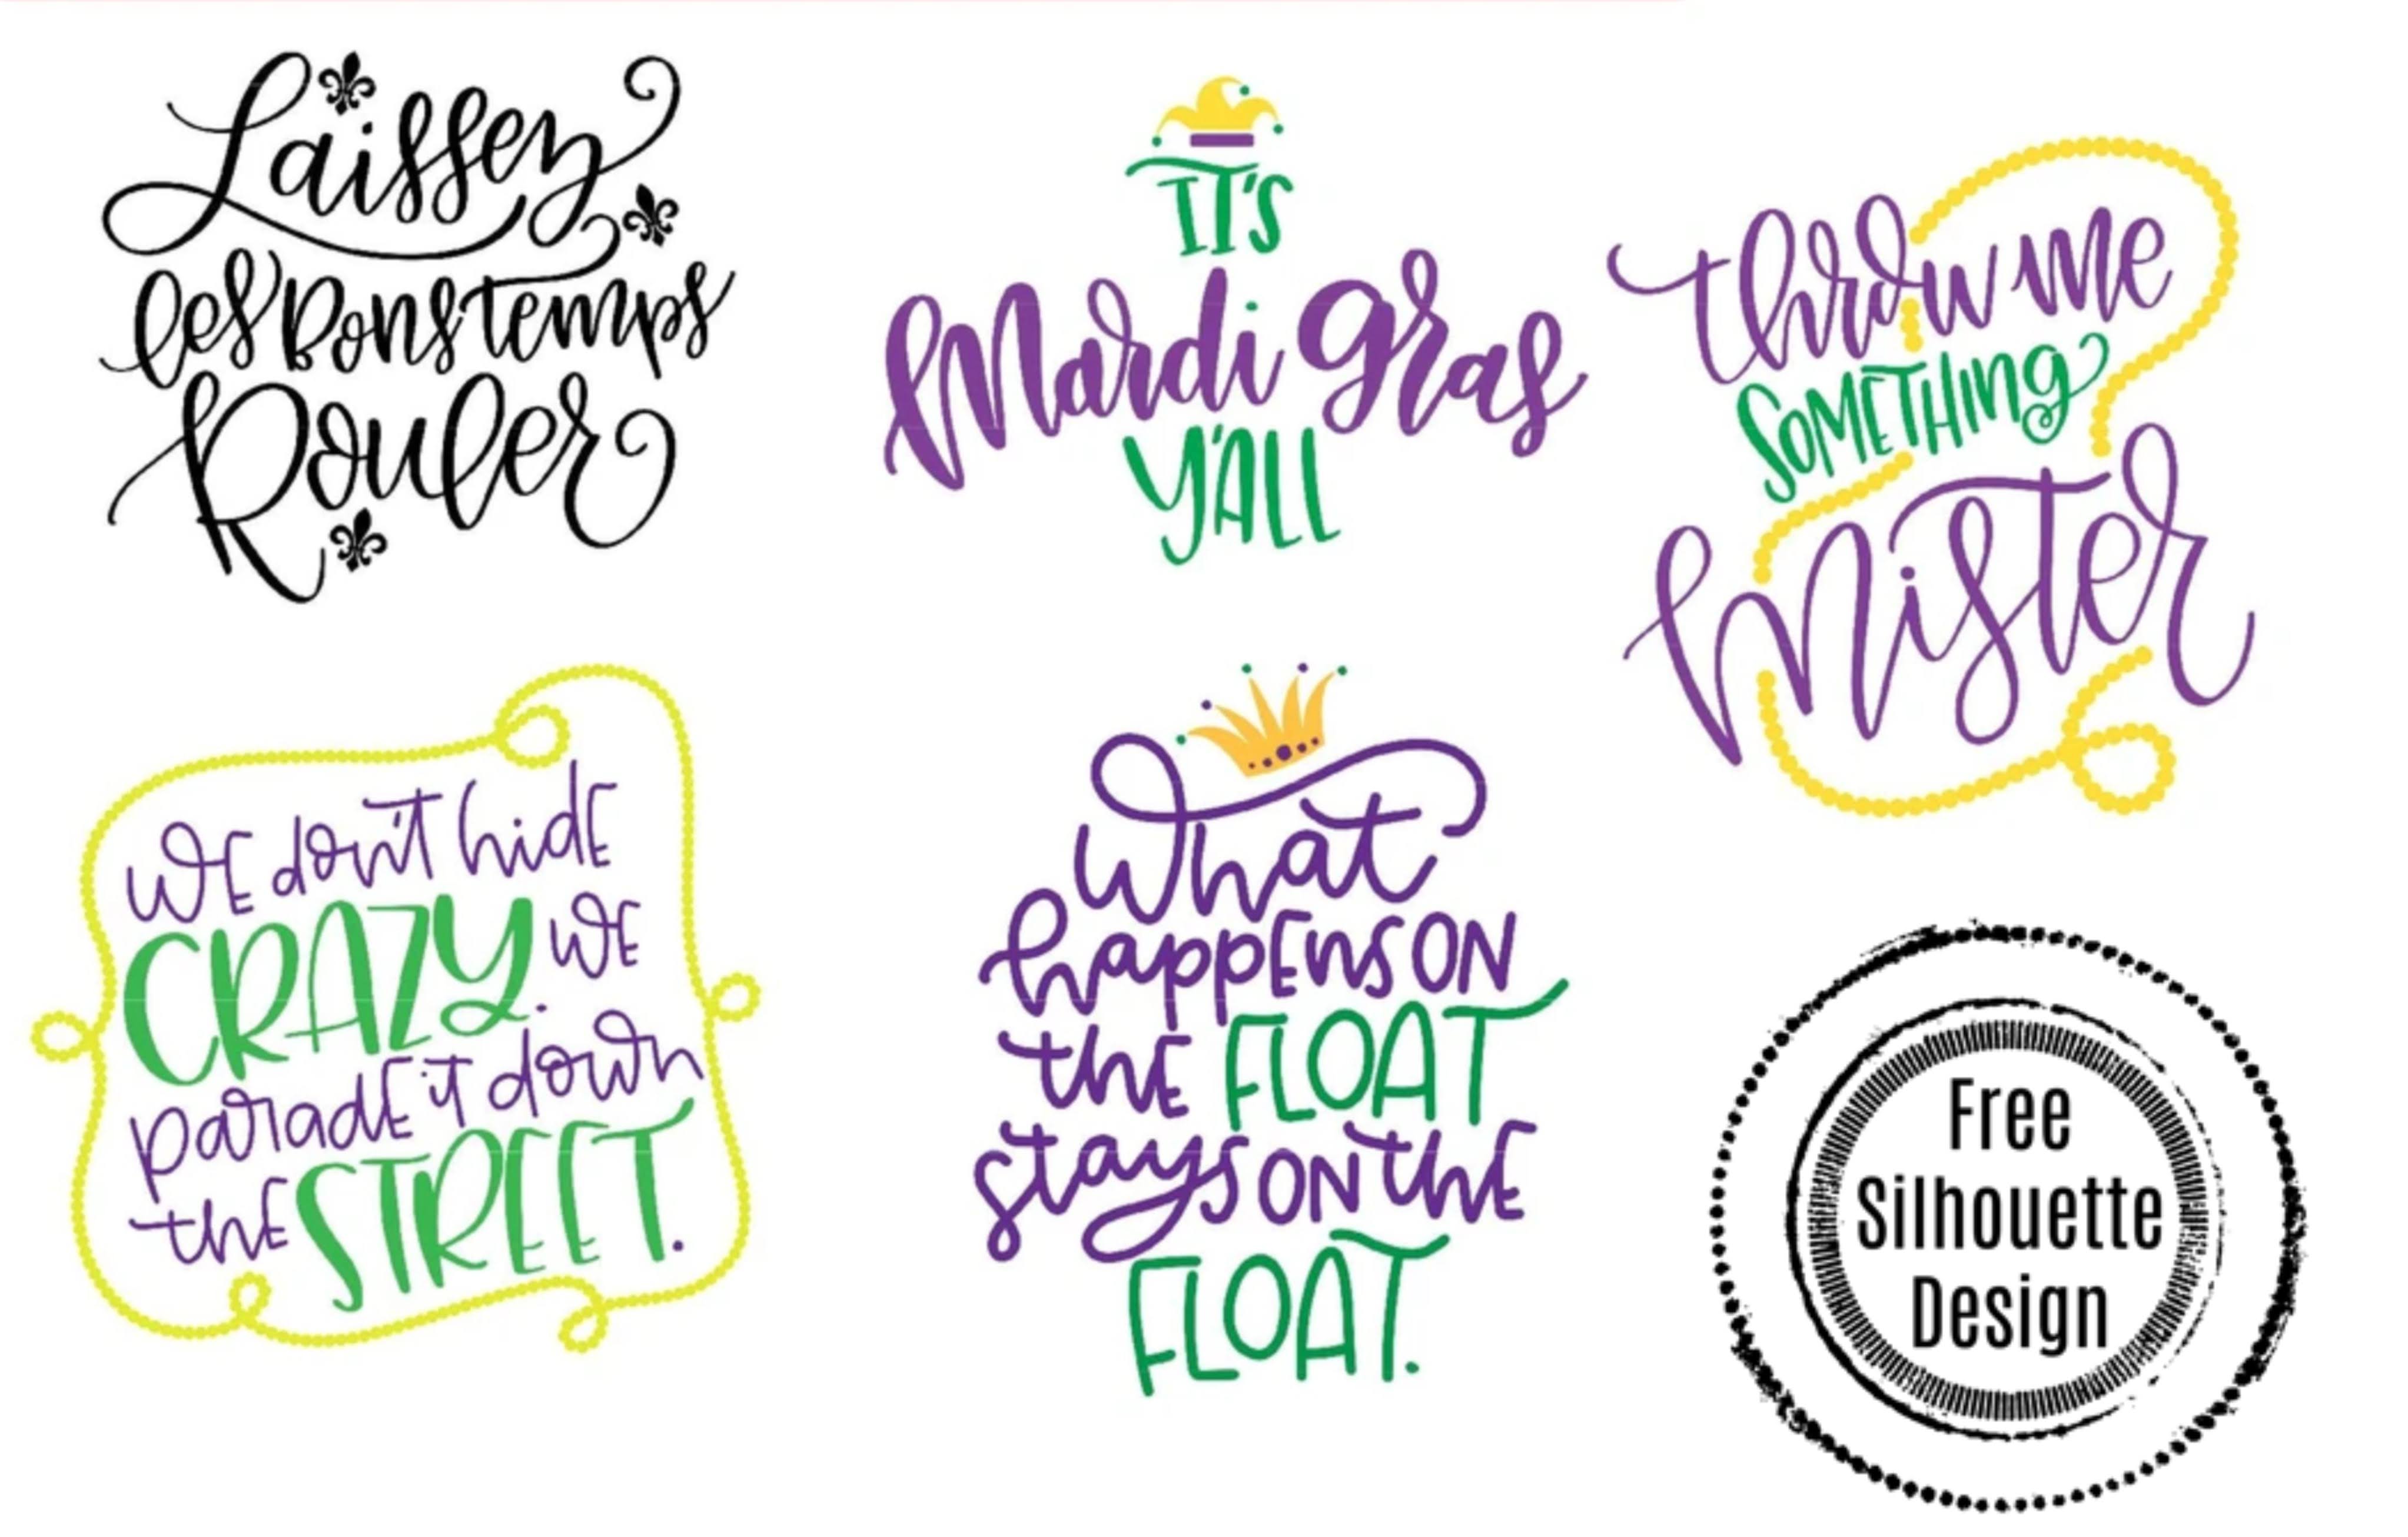 Laissez
les Bons temps
Rouler
IT'S
Mardi Gras
Y'ALL
throw me
SOMETHING
Mister
WE don't hidE
CRAZY. WE
paradE it down
thE STREET.
What
happEns ON
thE FLOAT
stays ON thE
FLOAT.
Free
Silhouette
Design